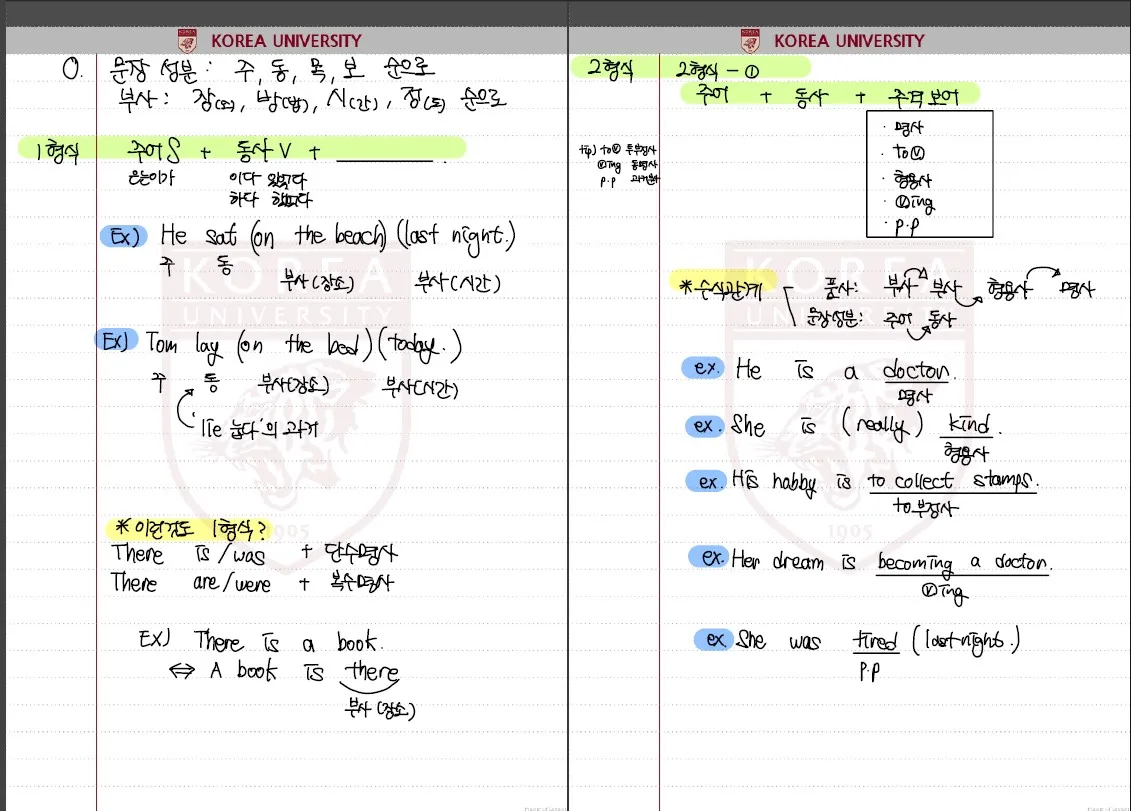 KOREA UNIVERSITY
0. 문장 성분 : 주, 동, 목, 보 순으로
부사 : 장(소), 방(법), 시(간), 정(도) 순으로
1형식 주어 S + 동사 V + ________ .
은는이가 이다 있다
하다 했다
Ex) He sat (on the beach) (last night.)
주 동
부사(장소) 부사(시간)
Ex) Tom lay (on the bed) (today.)
주 동 부사(장소) 부사(시간)
'lie 눕다'의 과거
* 이런것도 1형식?
There is / was + 단수명사
There are / were + 복수명사
EX) There is a book.
⇔ A book is there
부사 (장소)
KOREA UNIVERSITY
2형식 2형식 - ①
주어 + 동사 + 주격 보어
· 명사
· to ⓥ
· 형용사
· ⓥing
· p.p
tip) to ⓥ 투부정사
ⓥing 동명사
p.p 과거분사
* 수식관계 품사: 부사 부사 형용사 명사
문장성분: 주어 동사
ex. He is a doctor.
명사
ex. She is (really) kind.
형용사
ex. His hobby is to collect stamps.
to부정사
ex. Her dream is becoming a doctor.
ⓥing
ex She was tired (last night.)
p.p
KOREA
UNIVERSITY
1905
KOREA
UNIVERSITY
1905